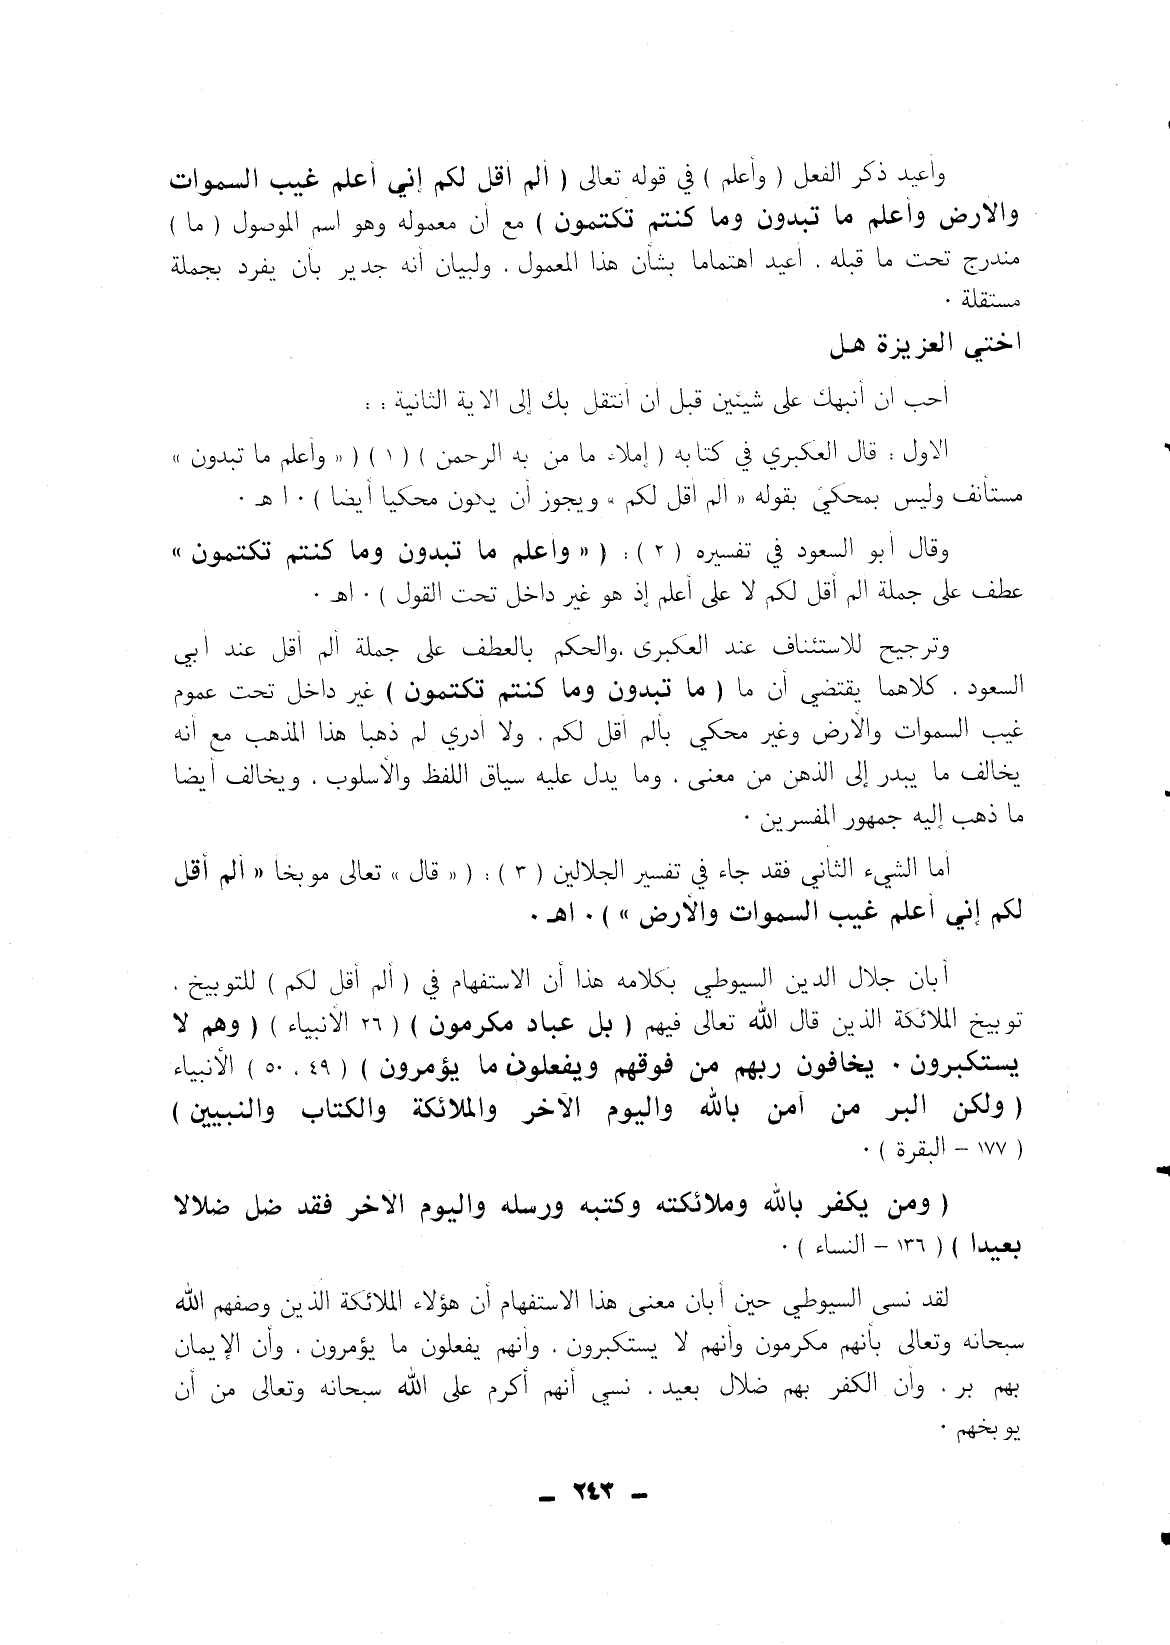 وأعيد ذكر الفعل ( وأعلم ) في قوله تعالى ( ألم أقل لكم إني أعلم غيب السموات
والارض وأعلم ما تبدون وما كنتم تكتمون ) مع أن معموله وهو اسم الموصول ( ما )
مندرج تحت ما قبله . أعيد اهتماما بشأن هذا المعمول . ولبيان أنه جدير بأن يفرد بجملة
مستقلة .
اختي العزيزة هل
أحب ان أنبهك على شيئين قبل أن أنتقل بك إلى الاية الثانية : :
الاول : قال العكبري في كتابه ( إملاء ما من به الرحمن ) ( ١ ) ( « وأعلم ما تبدون »
مستأنف وليس بمحكي بقوله « ألم أقل لكم » ويجوز أن يكون محكيا أيضا ) . ا هـ .
وقال أبو السعود في تفسيره ( ٢ ) : ( « وأعلم ما تبدون وما كنتم تكتمون »
عطف على جملة الم أقل لكم لا على أعلم إذ هو غير داخل تحت القول ) . اهـ .
وترجيح للاستئناف عند العكبرى .والحكم بالعطف على جملة ألم أقل عند أبي
السعود . كلاهما يقتضي أن ما ( ما تبدون وما كنتم تكتمون ) غير داخل تحت عموم
غيب السموات والأرض وغير محكي بألم أقل لكم . ولا أدري لم ذهبا هذا المذهب مع أنه
يخالف ما يبدر إلى الذهن من معنى . وما يدل عليه سياق اللفظ والأسلوب . ويخالف أيضا
ما ذهب إليه جمهور المفسرين .
أما الشيء الثاني فقد جاء في تفسير الجلالين ( ٣ ) : ( « قال » تعالى موبخا « ألم أقل
لكم إني أعلم غيب السموات والأرض » ) . اهـ .
أبان جلال الدين السيوطي بكلامه هذا أن الاستفهام في ( ألم أقل لكم ) للتوبيخ .
توبيخ الملائكة الذين قال الله تعالى فيهم ( بل عباد مكرمون ) ( ٢٦ الأنبياء ) ( وهم لا
يستكبرون . يخافون ربهم من فوقهم ويفعلون ما يؤمرون ) ( ٤٩ . ٥٠ ) الأنبياء
( ولكن البر من آمن بالله واليوم الآخر والملائكة والكتاب والنبيين )
( ١٧٧ – البقرة ) .
( ومن يكفر بالله وملائكته وكتبه ورسله واليوم الآخر فقد ضل ضلالا
بعيدا ) ( ١٣٦ – النساء ) .
لقد نسى السيوطي حين أبان معنى هذا الاستفهام أن هؤلاء الملائكة الذين وصفهم الله
سبحانه وتعالى بأنهم مكرمون وأنهم لا يستكبرون . وأنهم يفعلون ما يؤمرون . وأن الإيمان
بهم بر . وأن الكفر بهم ضلال بعيد . نسي أنهم أكرم على الله سبحانه وتعالى من أن
يوبخهم .
– ٢٤٣ –